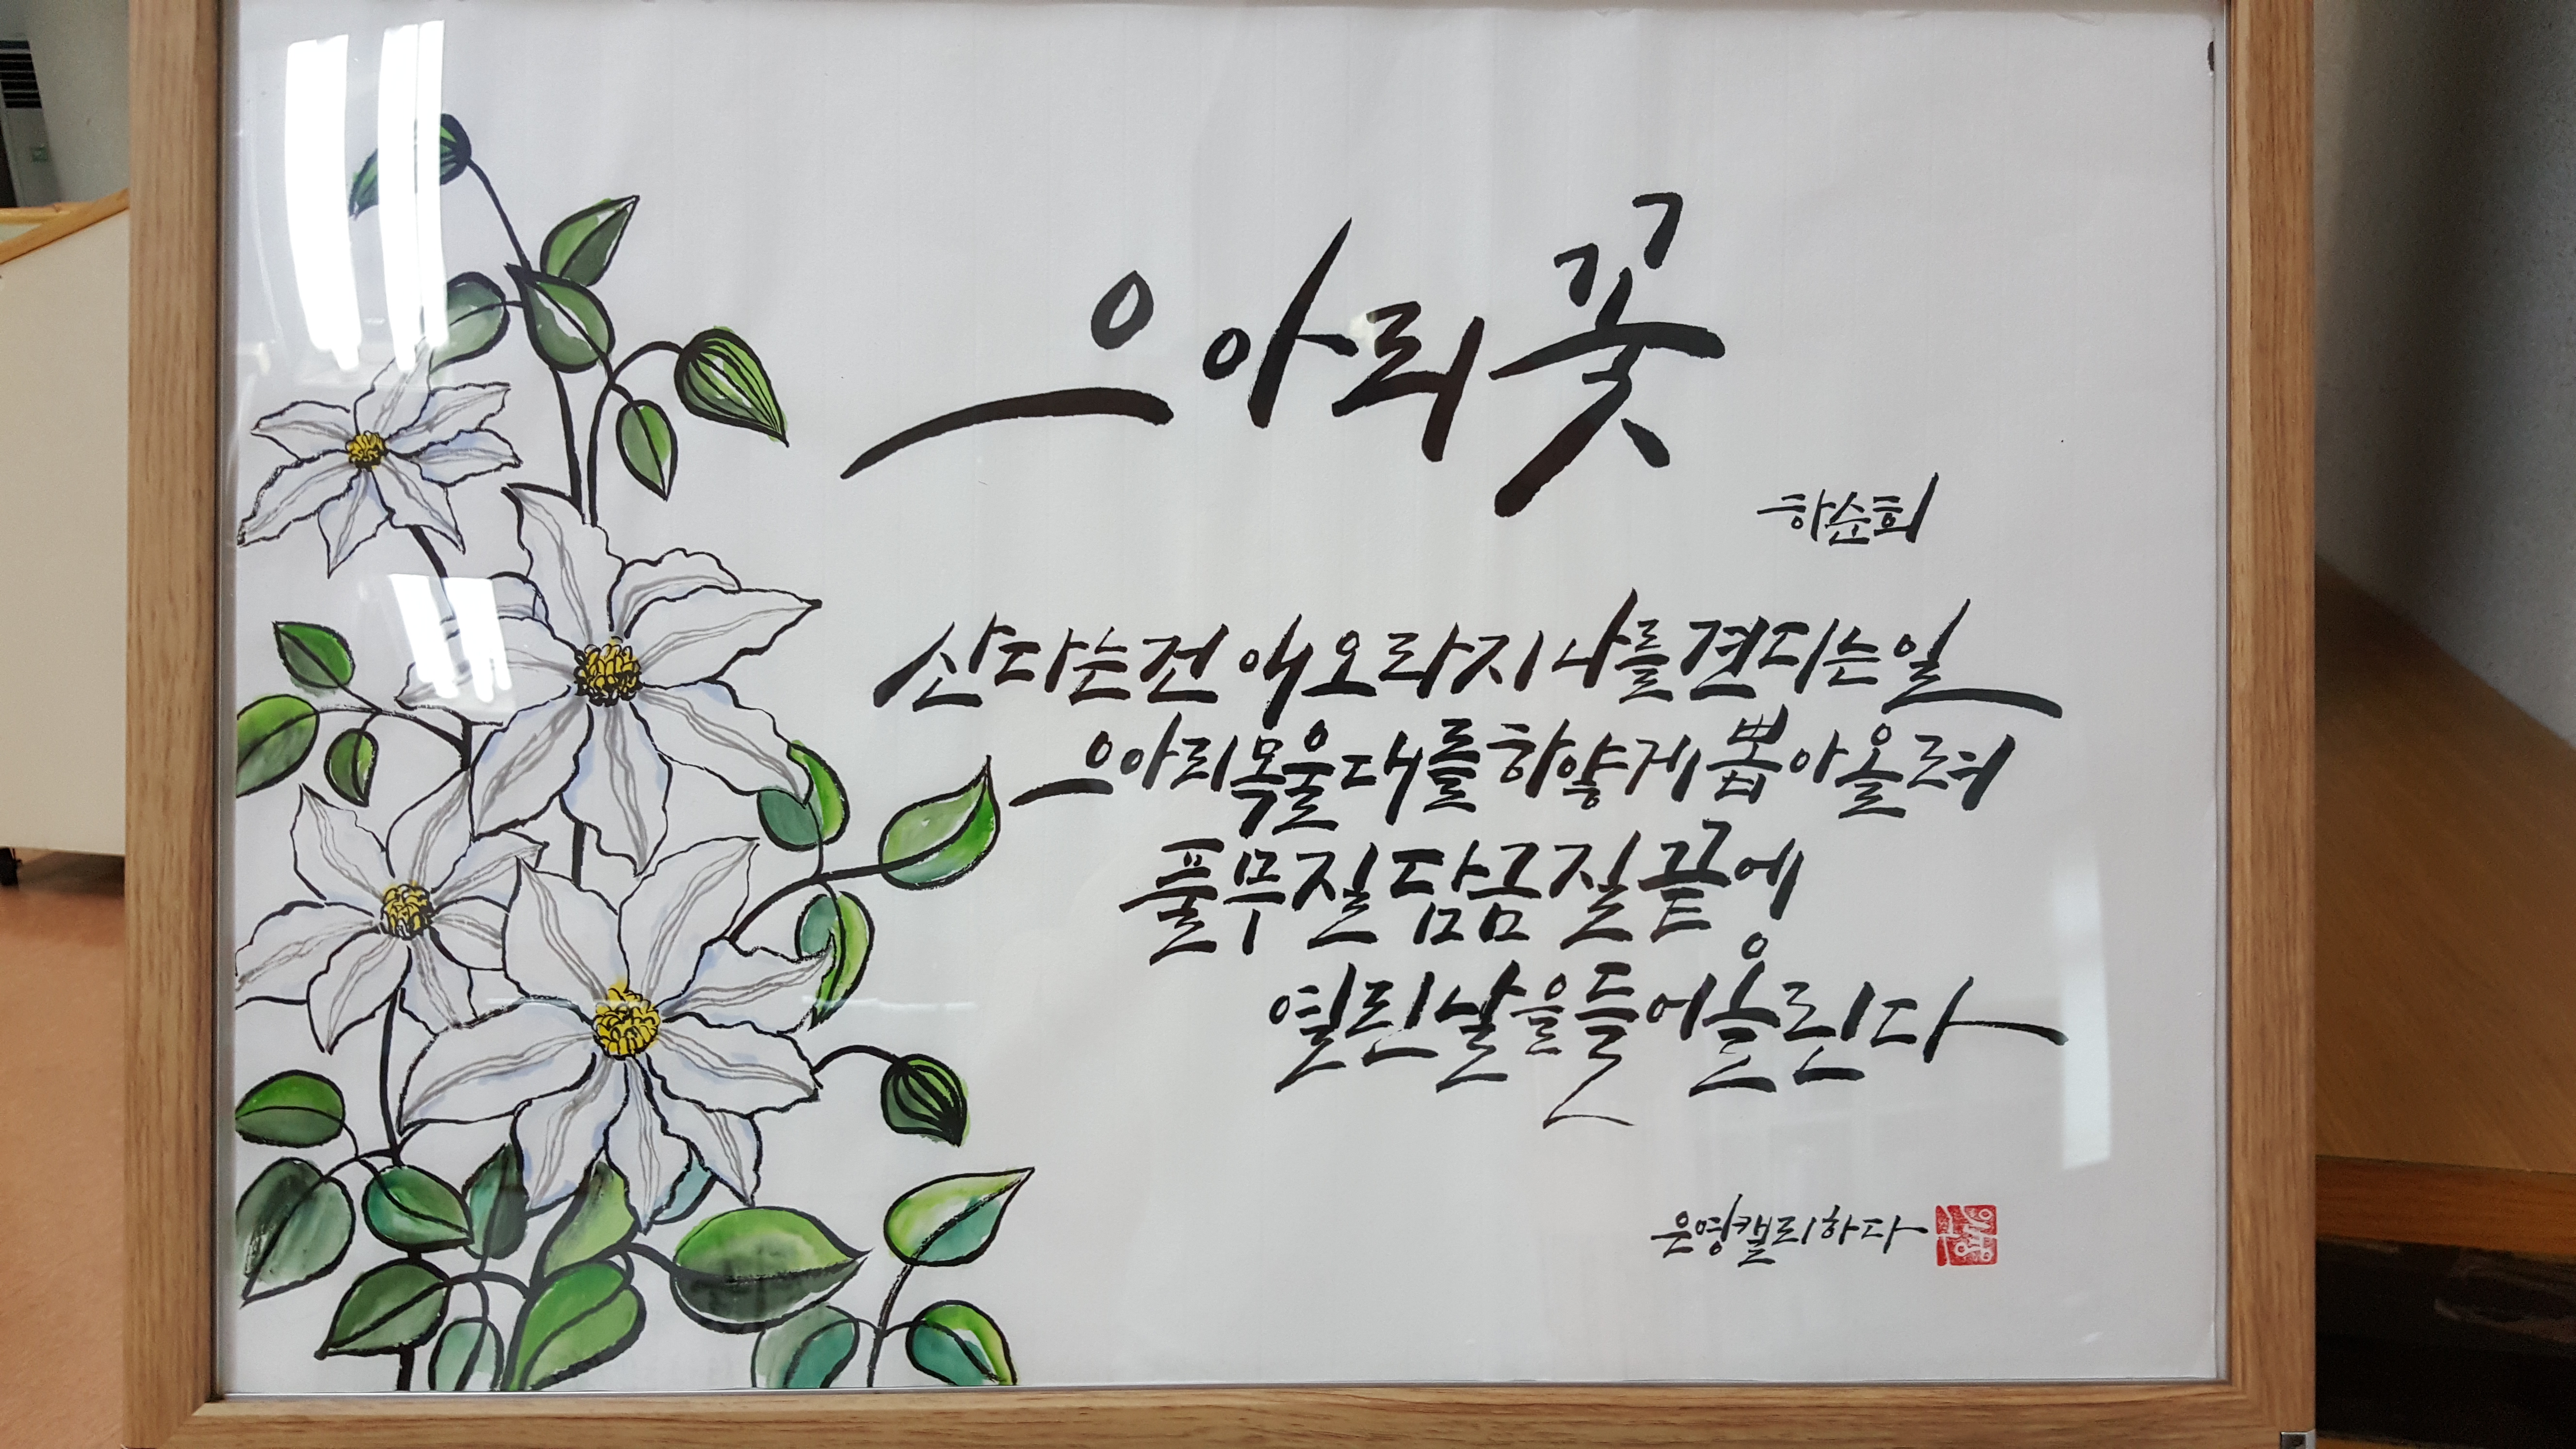 으아리꽃
하순희
산다는건 애오라지 나를 견디는 일
으아리 목울대를 하얗게 뽑아올려
풀무질 담금질 끝에
열린 날을 들어 올린다
은영캘리하다